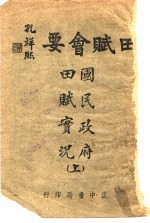 田賦會要
孔祥熙
國民政府
田賦實況
(上)
正中書局印行